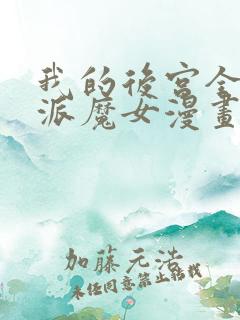 我的後宮全
派魔女漫畫
加藤元浩
未经同意禁止转载